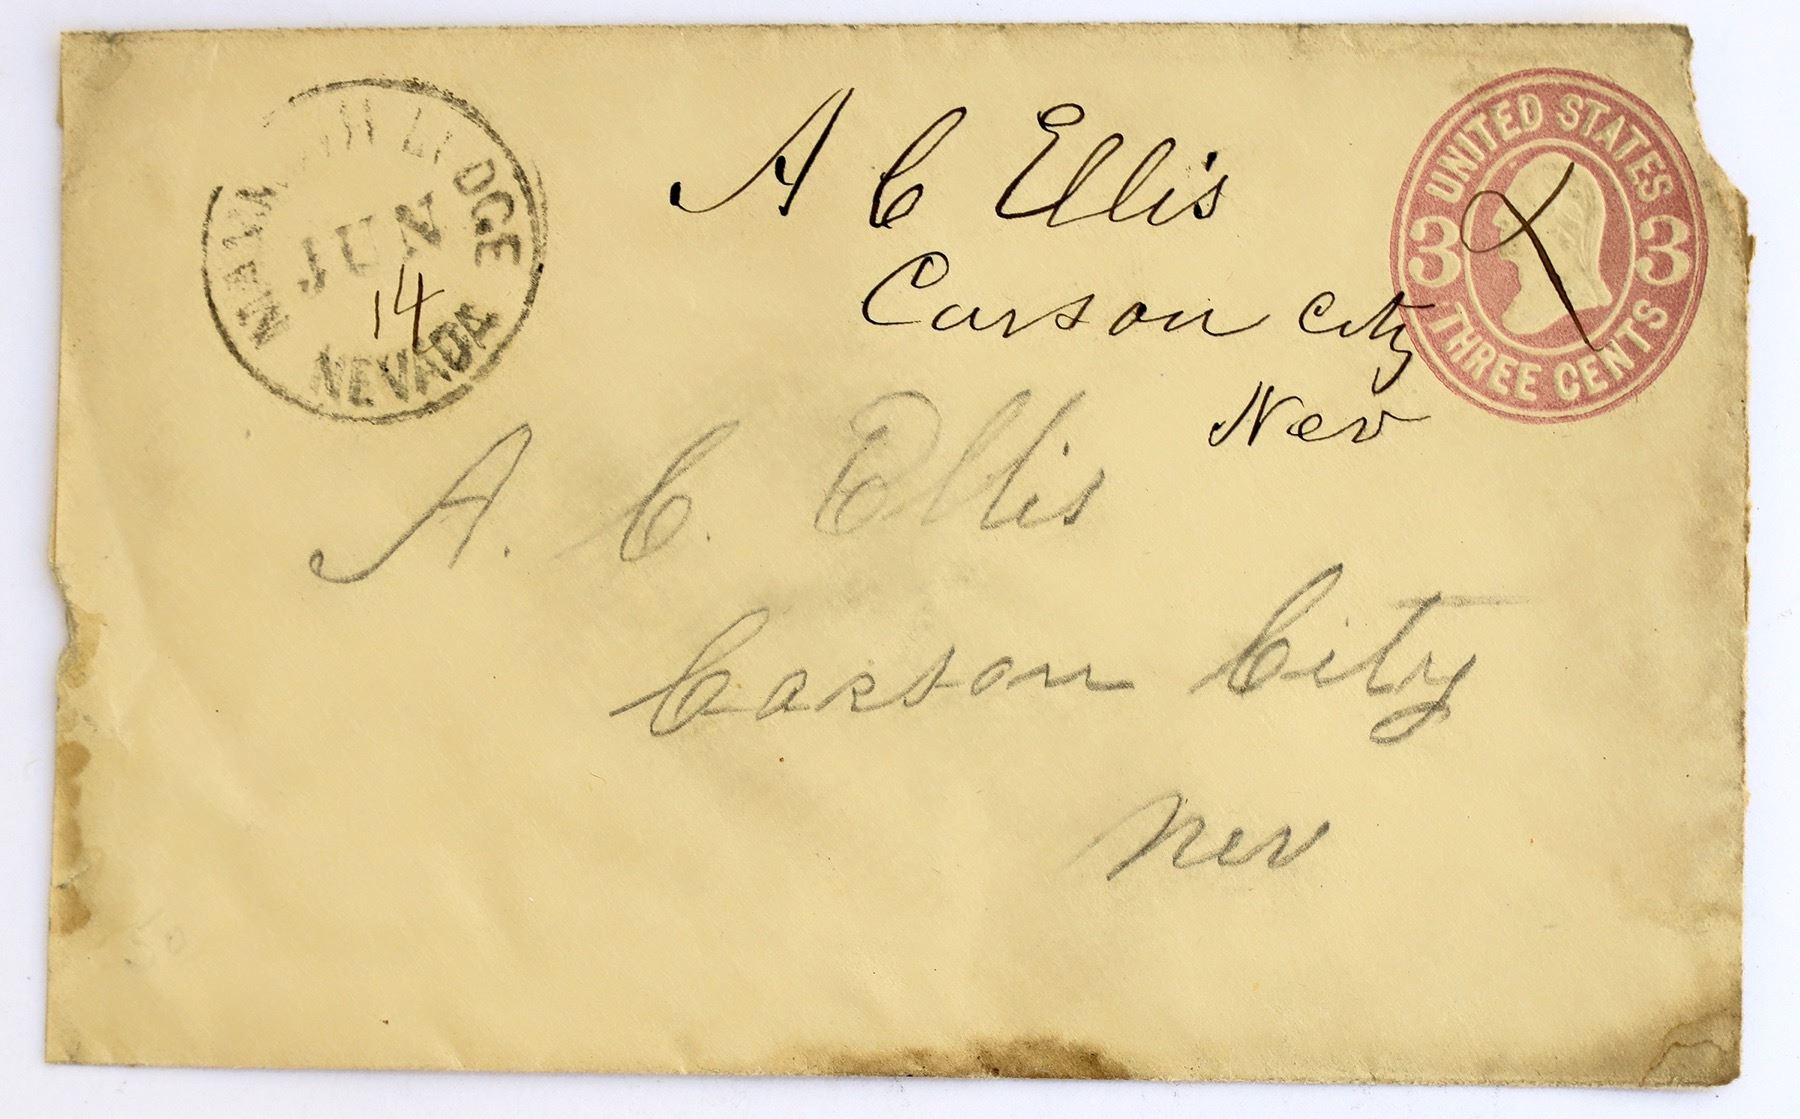 MAMMOTH LODGE
JUN
14
NEVADA
A C Ellis
Carson City
Nev
UNITED STATES
3 3
THREE CENTS
A. C. Ellis
Carson City
Nev
50